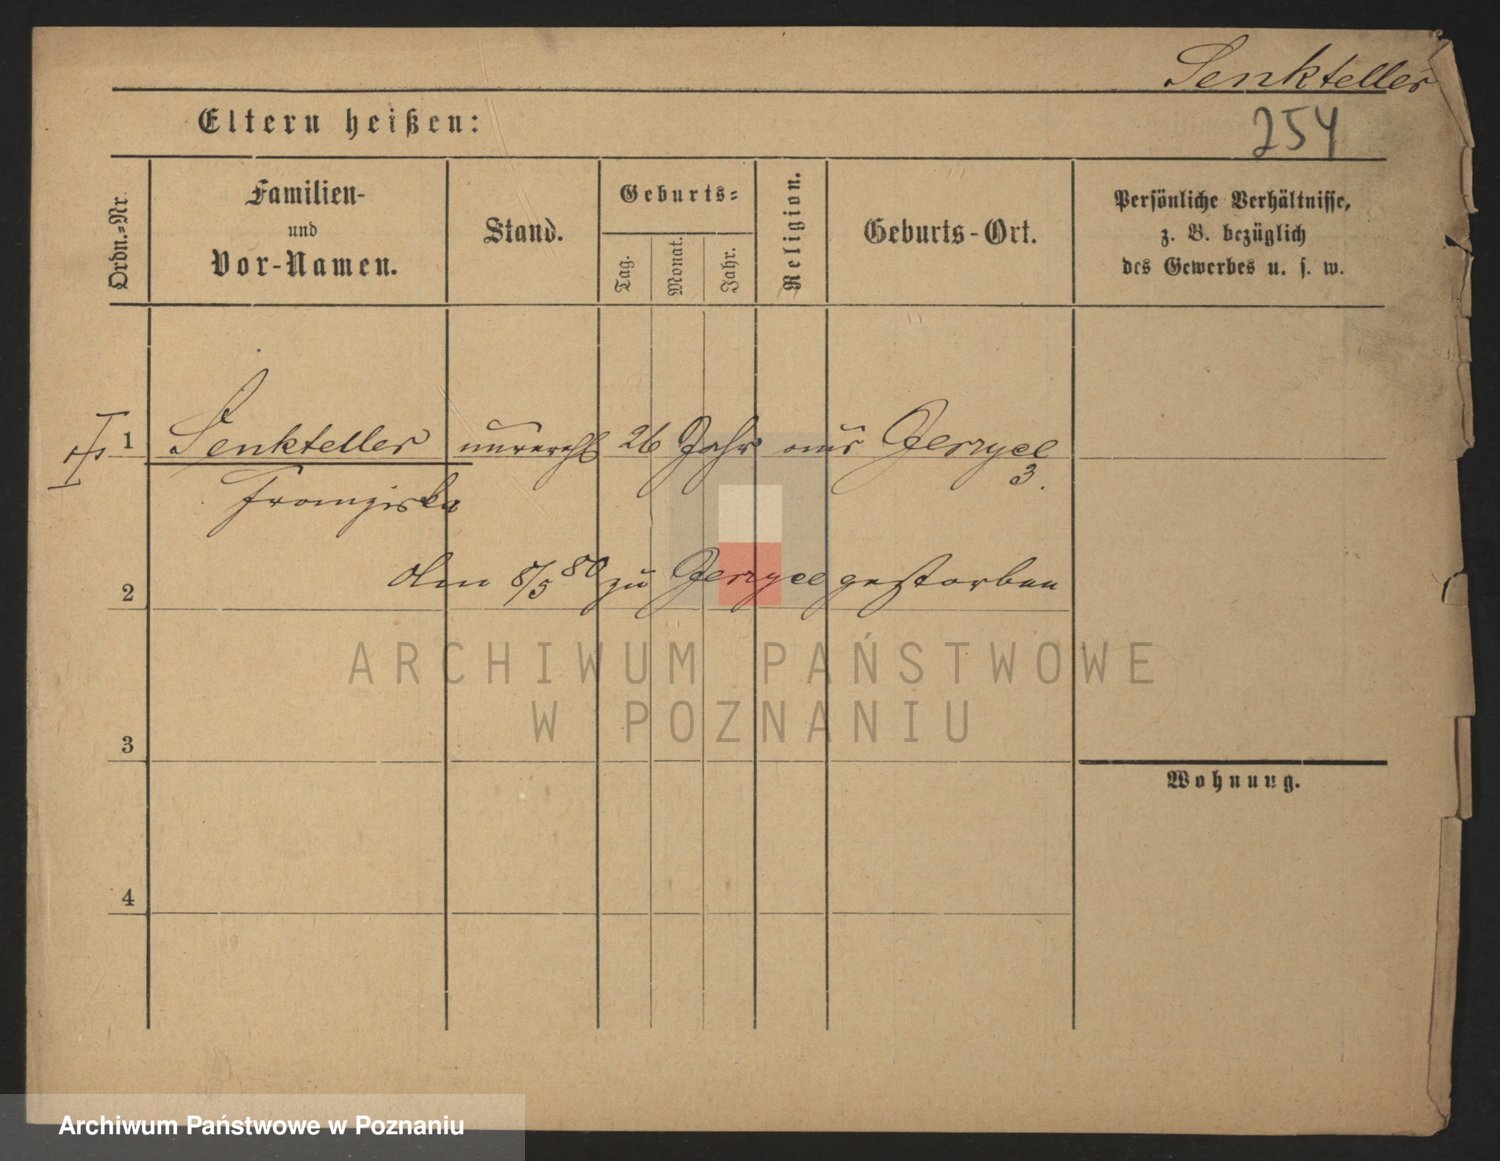 Senkteller
254
Eltern heißen:
Ordn.=Nr.
Familien-
und
Vor-Namen.
Stand.
Geburts=
Tag.
Monat.
Jahr.
Religion.
Geburts-Ort.
Persönliche Verhältnisse,
z. B. bezüglich
des Gewerbes u. s. w.
1 Senkteller unverehl 26 Jahr aus Jerzyce
3.
Franziska
Am 8/5 80 zu Jerzyce gestorben
2
ARCHIWUM PAŃSTWOWE
W POZNANIU
3
Wohnung.
4
Archiwum Państwowe w Poznaniu